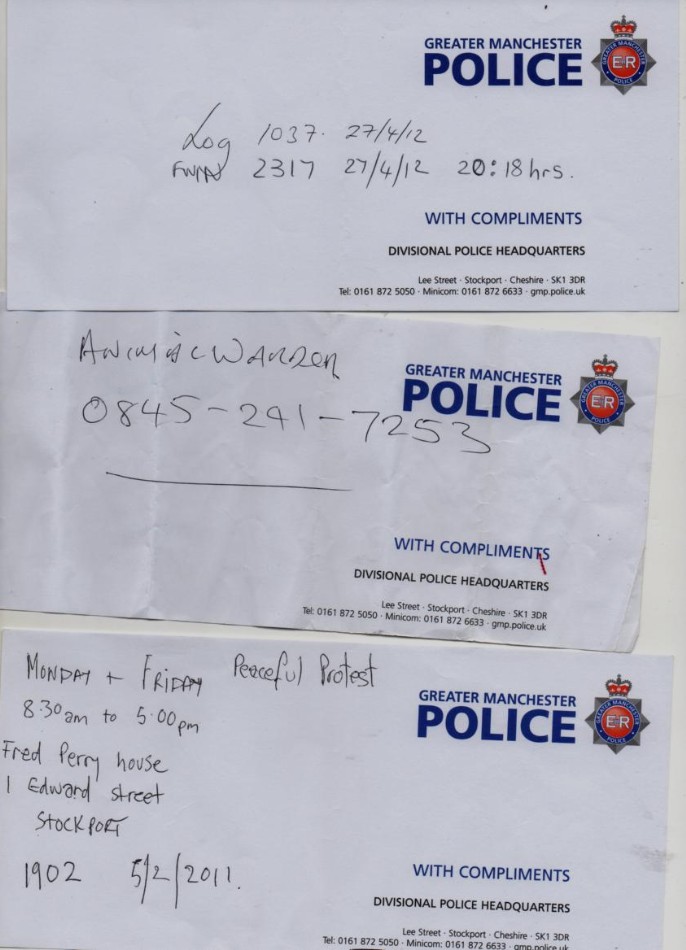 GREATER MANCHESTER
POLICE
GREATER MANCHESTER
E R
POLICE
Log 1037. 27/4/12
FWIN 2317 27/4/12 20:18 hrs.
WITH COMPLIMENTS
DIVISIONAL POLICE HEADQUARTERS
Lee Street · Stockport · Cheshire · SK1 3DR
Tel: 0161 872 5050 · Minicom: 0161 872 6633 · gmp.police.uk
WARDEN
0845-241-7253
GREATER MANCHESTER
POLICE
GREATER MANCHESTER
E R
POLICE
WITH COMPLIMENTS
DIVISIONAL POLICE HEADQUARTERS
Lee Street · Stockport · Cheshire · SK1 3DR
Tel: 0161 872 5050 · Minicom: 0161 872 6633 · gmp.police.uk
MONDAY + FRIDAY Peaceful Protest
8.30am to 5.00pm
Fred Perry house
1 Edward street
STOCKPORT
1902 5/2/2011.
GREATER MANCHESTER
POLICE
GREATER MANCHESTER
E R
POLICE
WITH COMPLIMENTS
DIVISIONAL POLICE HEADQUARTERS
Lee Street · Stockport · Cheshire · SK1 3DR
Tel: 0161 872 5050 · Minicom: 0161 872 6633 · gmp.police.uk